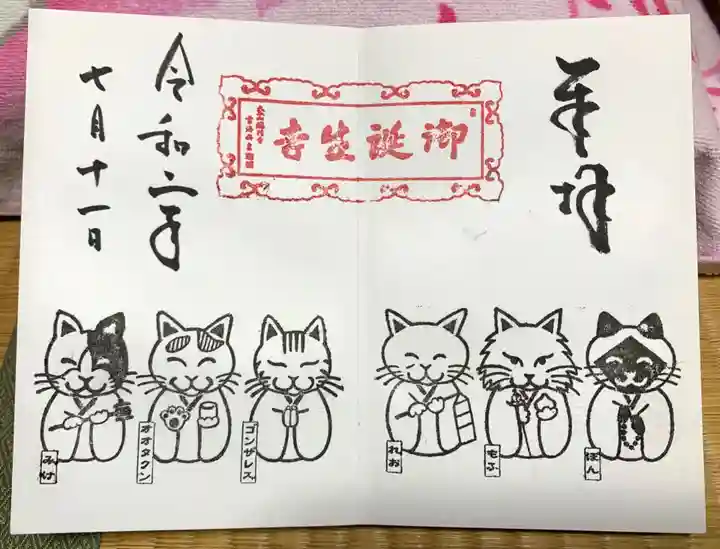 奉拝
御誕生寺
令和二年
七月十一日
みけ
オオタクン
ゴンザレス
れお
もふ
ぽん